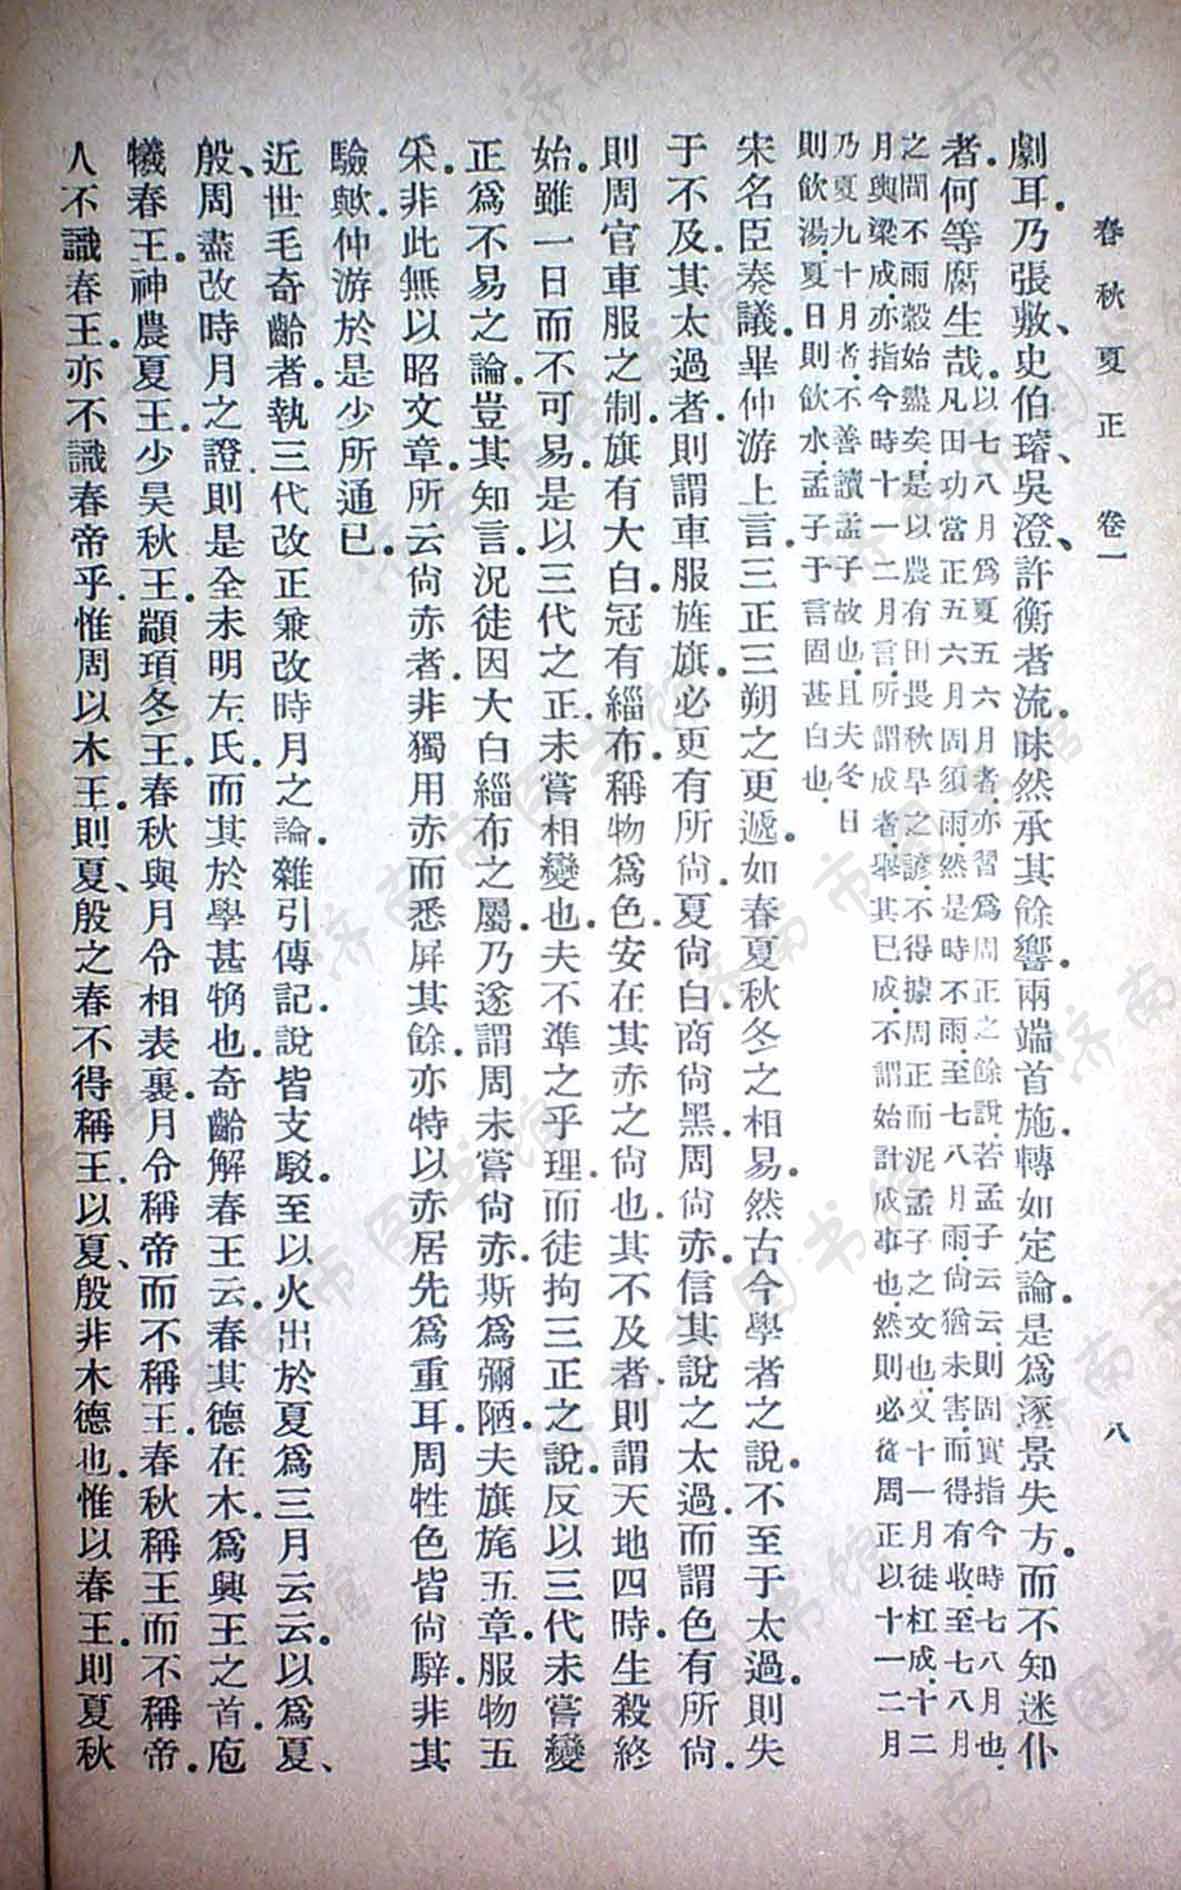 春秋夏正 卷一 八
劇耳。乃張敷、史伯璿、吳澄、許衡者流。昧然承其餘響。兩端首施。轉如定論。是爲逐景失方。而不知迷仆
者。何等腐生哉。以七八月爲夏五六月者。亦習爲周正之餘說。若孟子云云。則固實指今時七八月也。
凡田功當正五六月固須雨。然是時不雨。至七八月雨。尙猶未害。而得有收。至七八月
之間不雨穀始盡矣。是以農有田畏秋旱之諺。不得據周正而泥孟子之文也。又十一月徒杠成。十二
月輿梁成。亦指今時十一二月言。所謂成者。舉其已成。不謂始計成事也。然則必從周正以十一二月
乃夏九十月者。不善讀孟子故也。且夫冬日
則飲湯。夏日則飲水。孟子于言固甚白也。
宋名臣奏議。畢仲游上言。三正三朔之更遞。如春夏秋冬之相易。然古今學者之說。不至于太過。則失
于不及。其太過者。則謂車服旌旗。必更有所尙。夏尙白。商尙黑。周尙赤。信其說之太過。而謂色有所尙。
則周官車服之制。旗有大白。冠有緇布。稱物爲色。安在其赤之尙也。其不及者。則謂天地四時。生殺終
始。雖一日而不可易。是以三代之正。未嘗相變也。夫不準之乎理。而徒拘三正之說。反以三代未嘗變
正爲不易之論。豈其知言。況徒因大白緇布之屬。乃遂謂周未嘗尙赤。斯爲彌陋。夫旗旄五章。服物五
采。非此無以昭文章。所云尙赤者。非獨用赤而悉屏其餘。亦特以赤居先爲重耳。周牲色皆尙騂。非其
驗歟。仲游於是少所通已。
近世毛奇齡者。執三代改正兼改時月之論。雜引傳記。說皆支駁。至以火出於夏爲三月云云。以爲夏、
殷、周盡改時月之證。則是全未明左氏。而其於學甚觕也。奇齡解春王云。春其德在木。爲興王之首。庖
犧春王。神農夏王。少昊秋王。顓頊冬王。春秋與月令相表裏。月令稱帝而不稱王。春秋稱王而不稱帝。
人不識春王。亦不識春帝乎。惟周以木王。則夏、殷之春不得稱王。以夏、殷非木德也。惟以春王。則夏秋
济南市图书馆